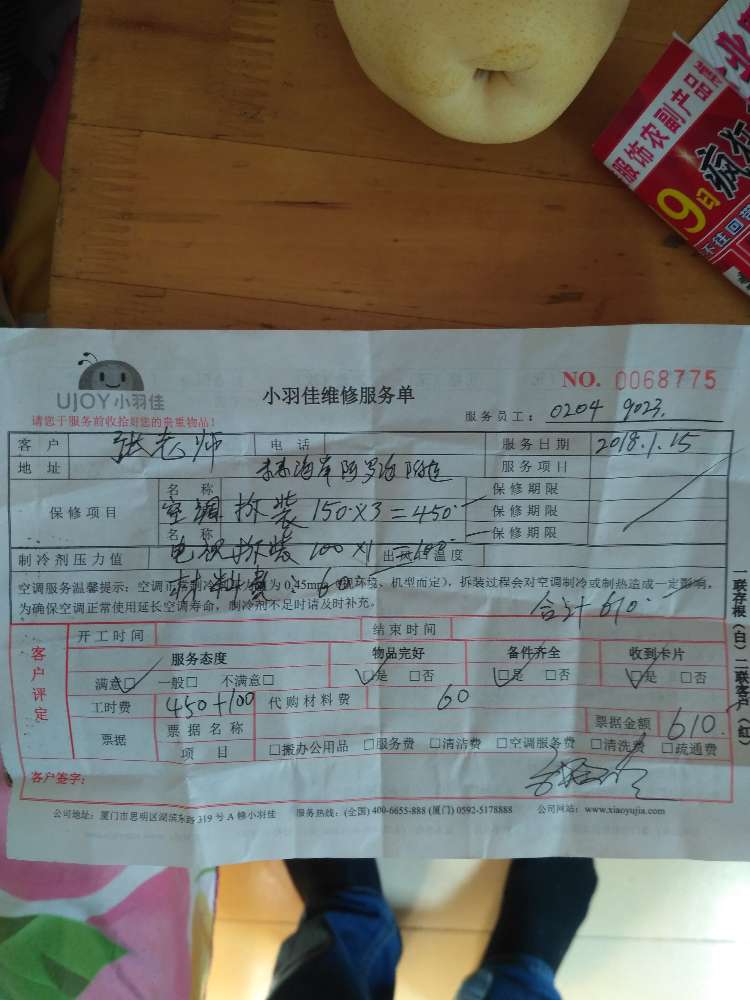 服饰农副产品
疯狂
9日
NO. 0068775
UJOY小羽佳
小羽佳维修服务单
请您于服务前收拾好您的贵重物品!
服务员工: 0204 9023.
客户 张老师 电话 服务日期 2018.1.15
地址 海岸阿罗海附近 服务项目
名称 保修期限
保修项目 空调拆装 150×3=450 保修期限
名称 保修期限
制冷剂压力值 电视拆装 100×1=100 出风口温度
材料费: 60
空调服务温馨提示: 空调 为0.45mpa 机型而定), 拆装过程会对空调制冷或制热造成一定影响,
为确保空调正常使用延长空调寿命, 制冷剂不足时请及时补充。 合计610.
一联存根(白) 二联客户(红)
客户评定
开工时间 结束时间
服务态度 物品完好 备件齐全 收到卡片
满意□ 一般□ 不满意□ □是 □否 □是 □否 □是 □否
工时费 450+100 代购材料费 60
票据 票据名称 票据金额 610.
项目 □搬办公用品 □服务费 □清洁费 □空调服务费 □清洗费 □疏通费
客户签字:
公司地址: 厦门市思明区湖滨东路319号A幢小羽佳 服务热线: (全国) 400-6655-888 (厦门) 0592-5178888 公司网站: www.xiaoyujia.com